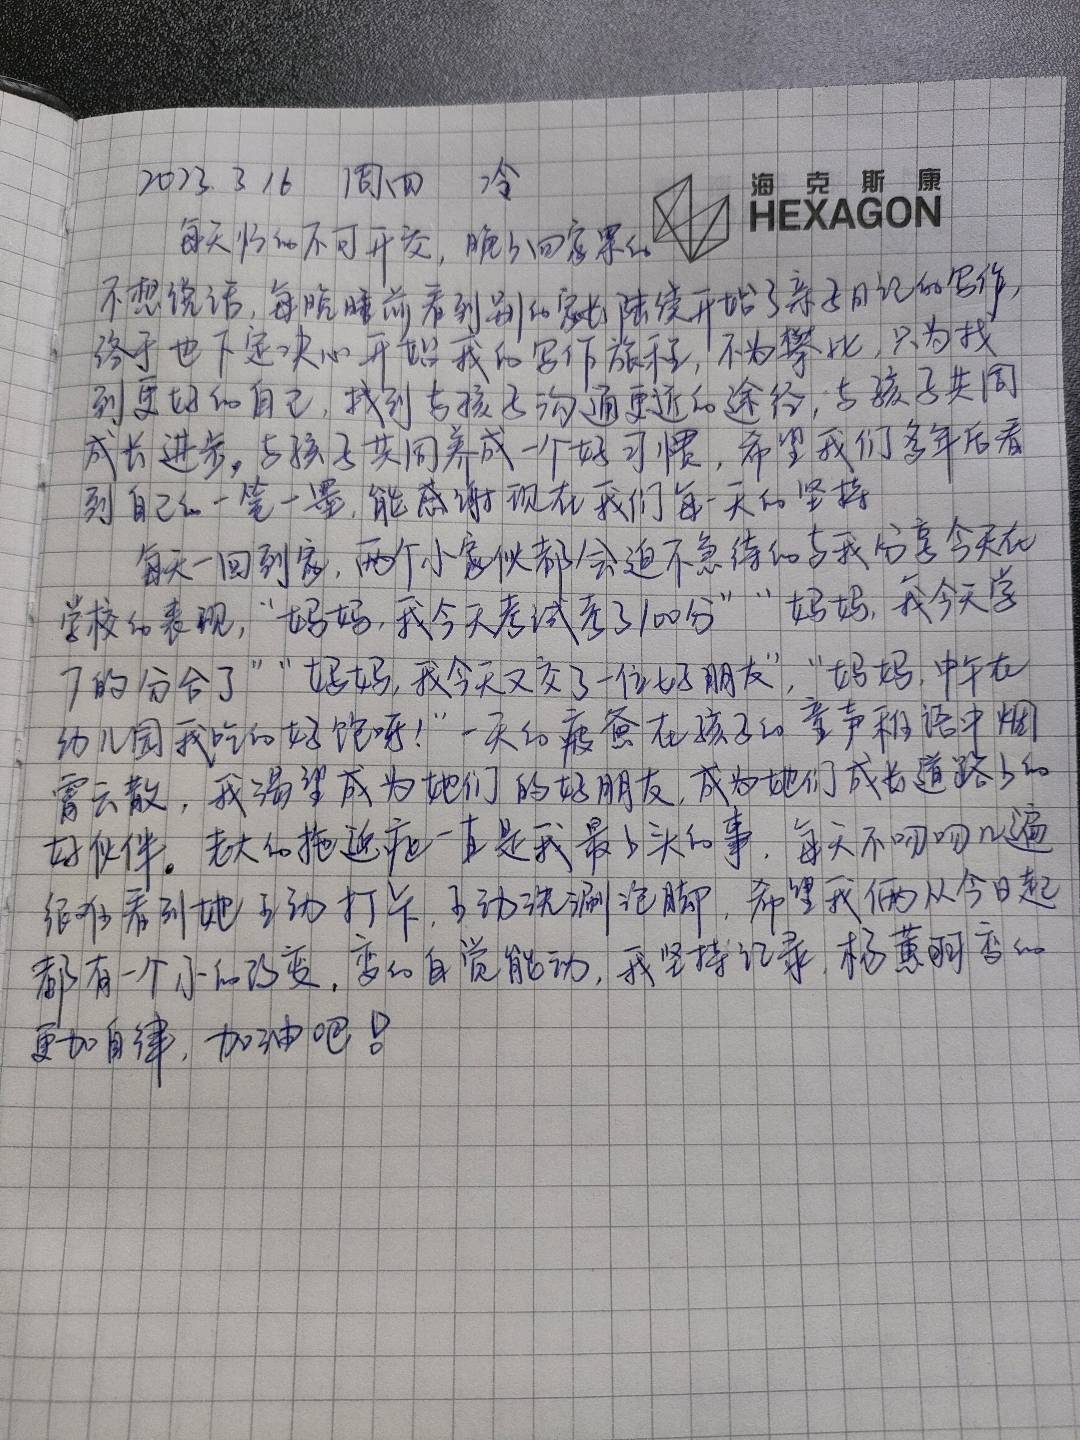 海克斯康
HEXAGON
2023.3.16 周四 冷
每天忙的不可开交，晚上回家累的
不想说话，每晚睡前看到别的家长陆续开始了亲子日记的写作，
终于也下定决心开始我的写作旅程，不为攀比，只为找
到更好的自己，找到与孩子沟通更近的途径，与孩子共同
成长进步。与孩子共同养成一个好习惯，希望我们多年后看
到自己的一笔一墨，能感谢现在我们每一天的坚持
每天一回到家，两个小家伙都会迫不急待的与我分享今天在
学校的表现，“妈妈，我今天考试考了100分”“妈妈，我今天学
7的分合了”“妈妈，我今天又交了一位好朋友”，“妈妈，中午在
幼儿园我吃的好饱呀！”一天的疲惫在孩子的童声稚语中烟
霄云散，我渴望成为她们的好朋友，成为她们成长道路上的
好伙伴。老大的拖延症一直是我最上头的事，每天不叨叨几遍
很难看到她主动打卡，主动洗漱泡脚，希望我俩从今日起
都有一个小的改变，变的自觉能动，我坚持记录，杨蕙羽变的
更加自律，加油吧！